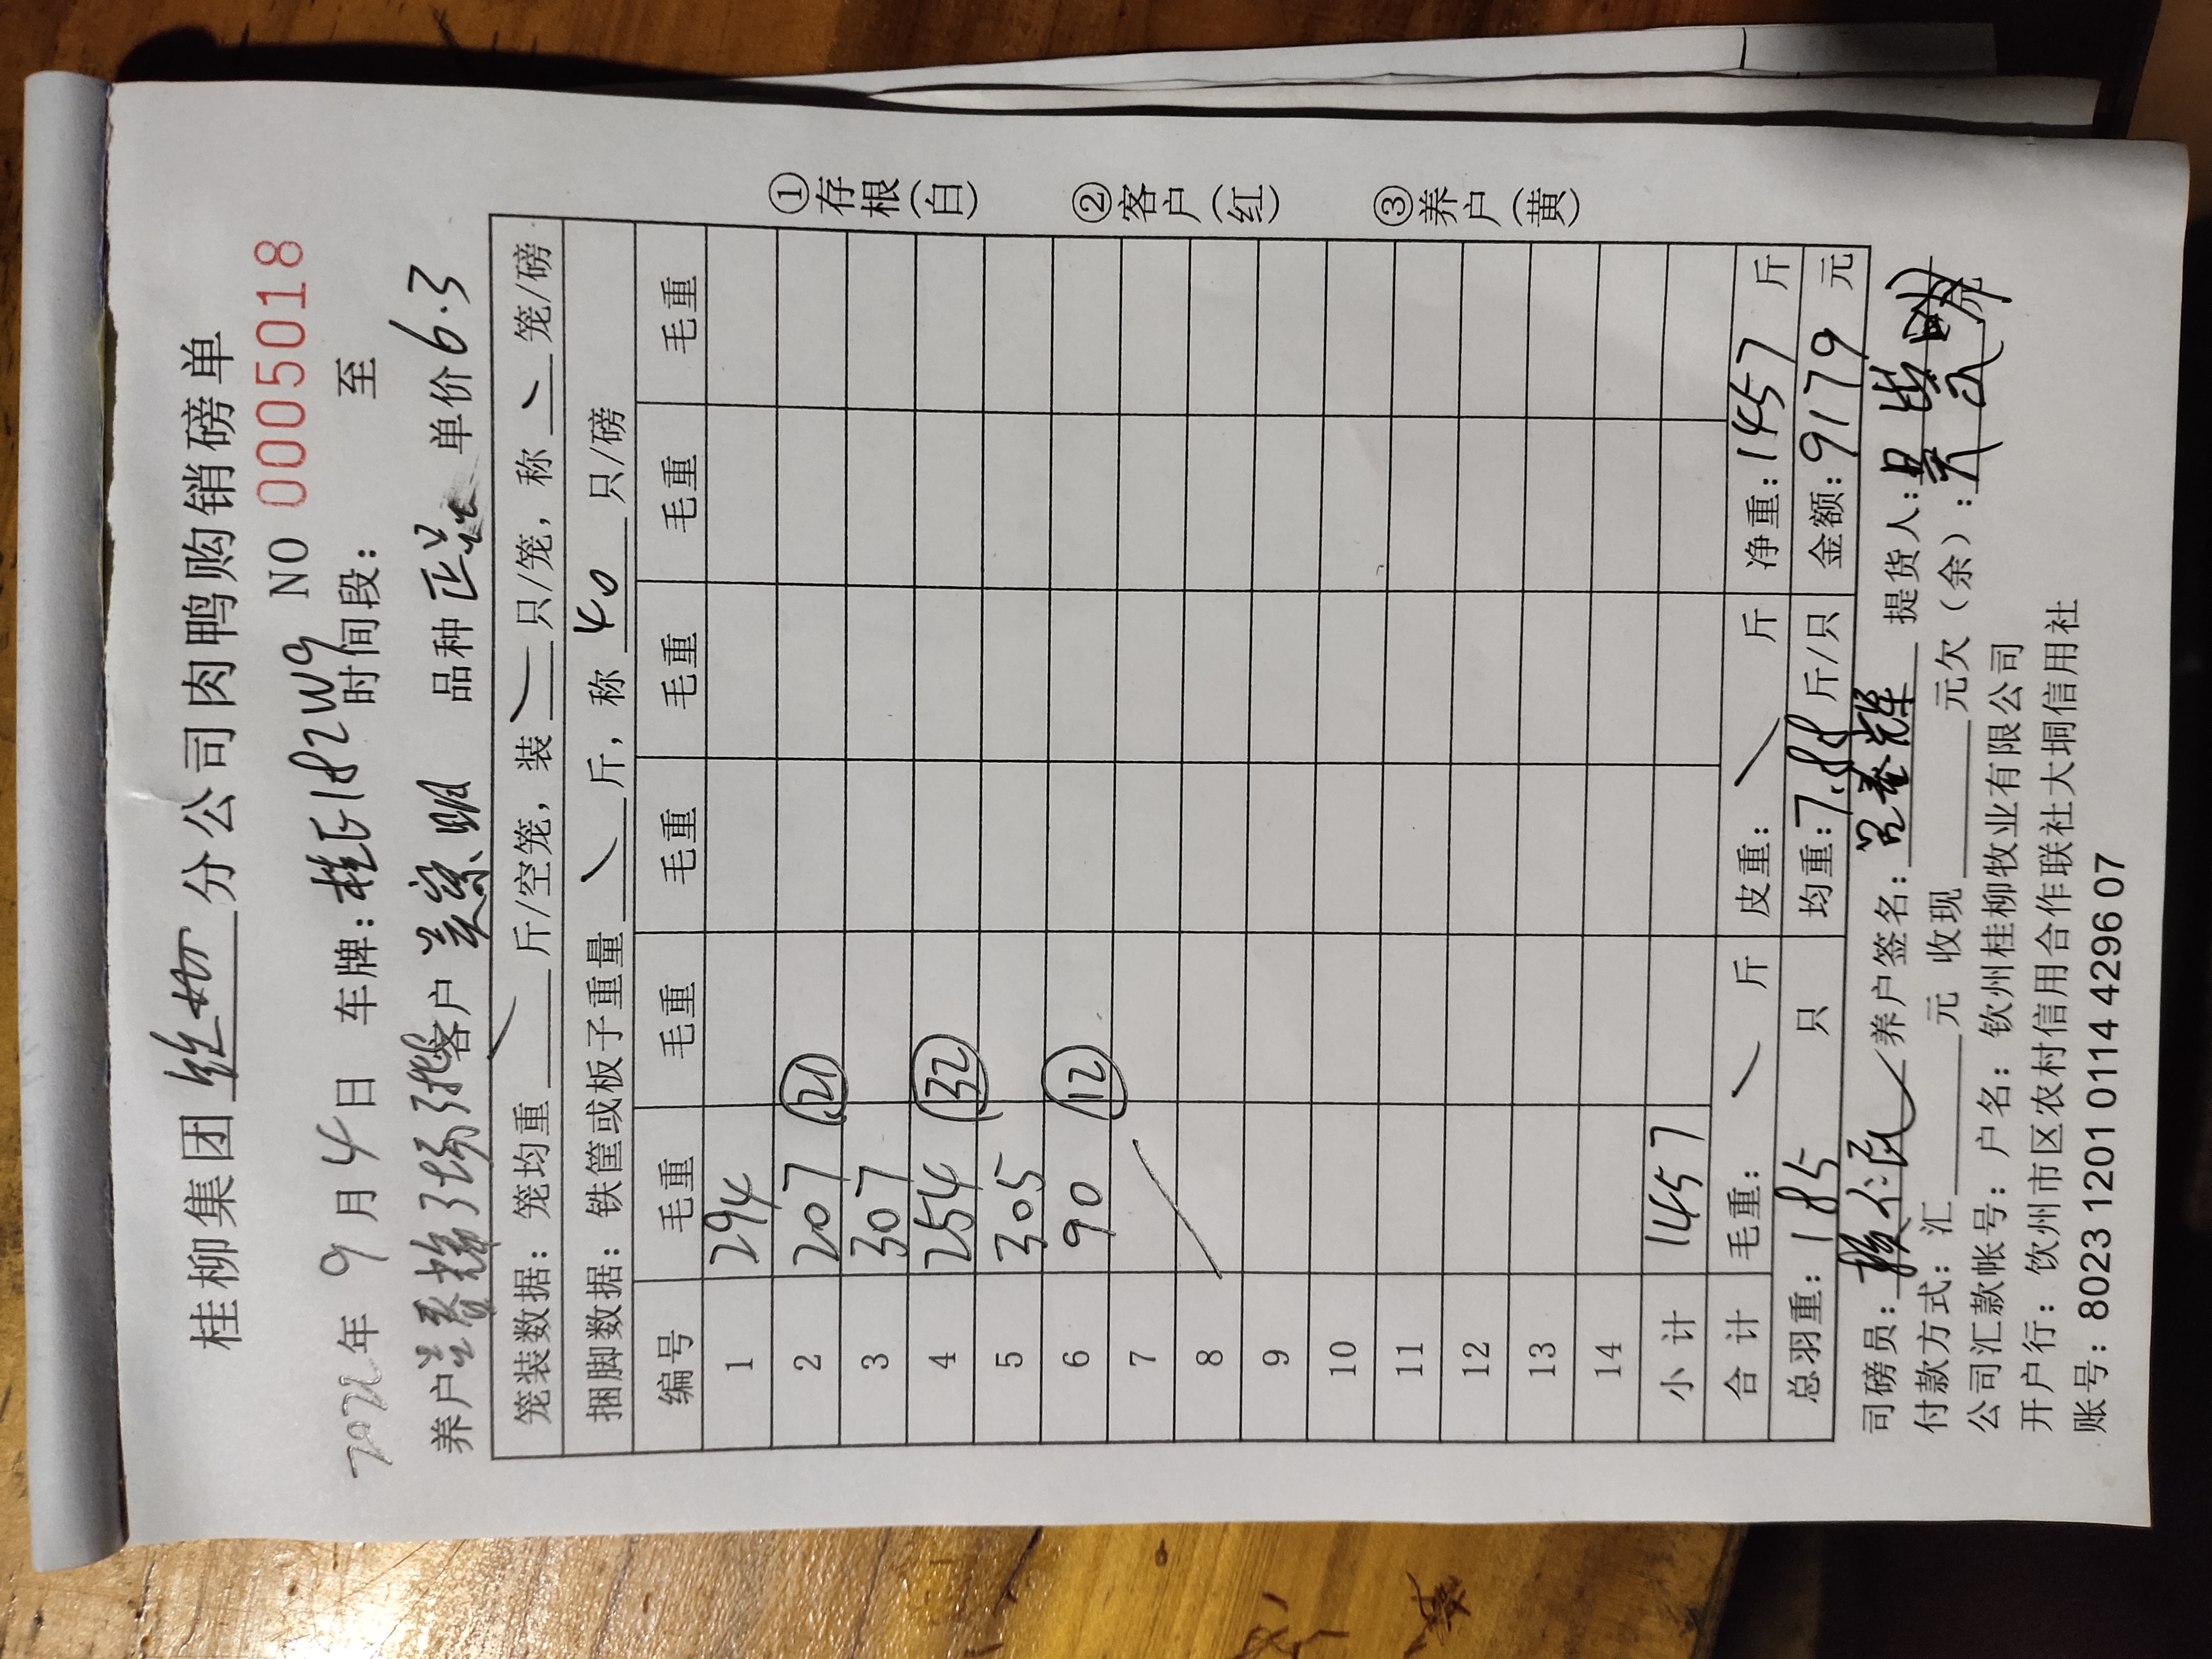 桂柳集团 分公司肉鸭购销磅单
NO 0005018
年 9 月 4 日 车牌: 桂E182W9 时间段: 至
养户 客户 品种 正品 单价 6.3
笼装数据: 笼均重 斤/空笼, 装 只/笼, 称 笼/磅
捆脚数据: 铁筐或板子重量 斤, 称 40 只/磅
编号 毛重 毛重 毛重 毛重 毛重 毛重
1 294
2 207 21
3 307
4 254 32
5 305
6 90 12
7
8
9
10
11
12
13
14
小 计 1457
合 计 毛重: 斤 皮重: 斤 净重: 1457 斤
总羽重: 185 只 均重: 7.88 斤/只 金额: 9179 元
司磅员: 养户签名: 提货人:
付款方式: 汇 元 收现 元欠(余): 元
公司汇款帐号: 户名: 钦州桂柳牧业有限公司
开户行: 钦州市区农村信用合作联社大垌信用社
账号: 8023 1201 0114 4296 07
①存根(白)
②客户(红)
③养户(黄)